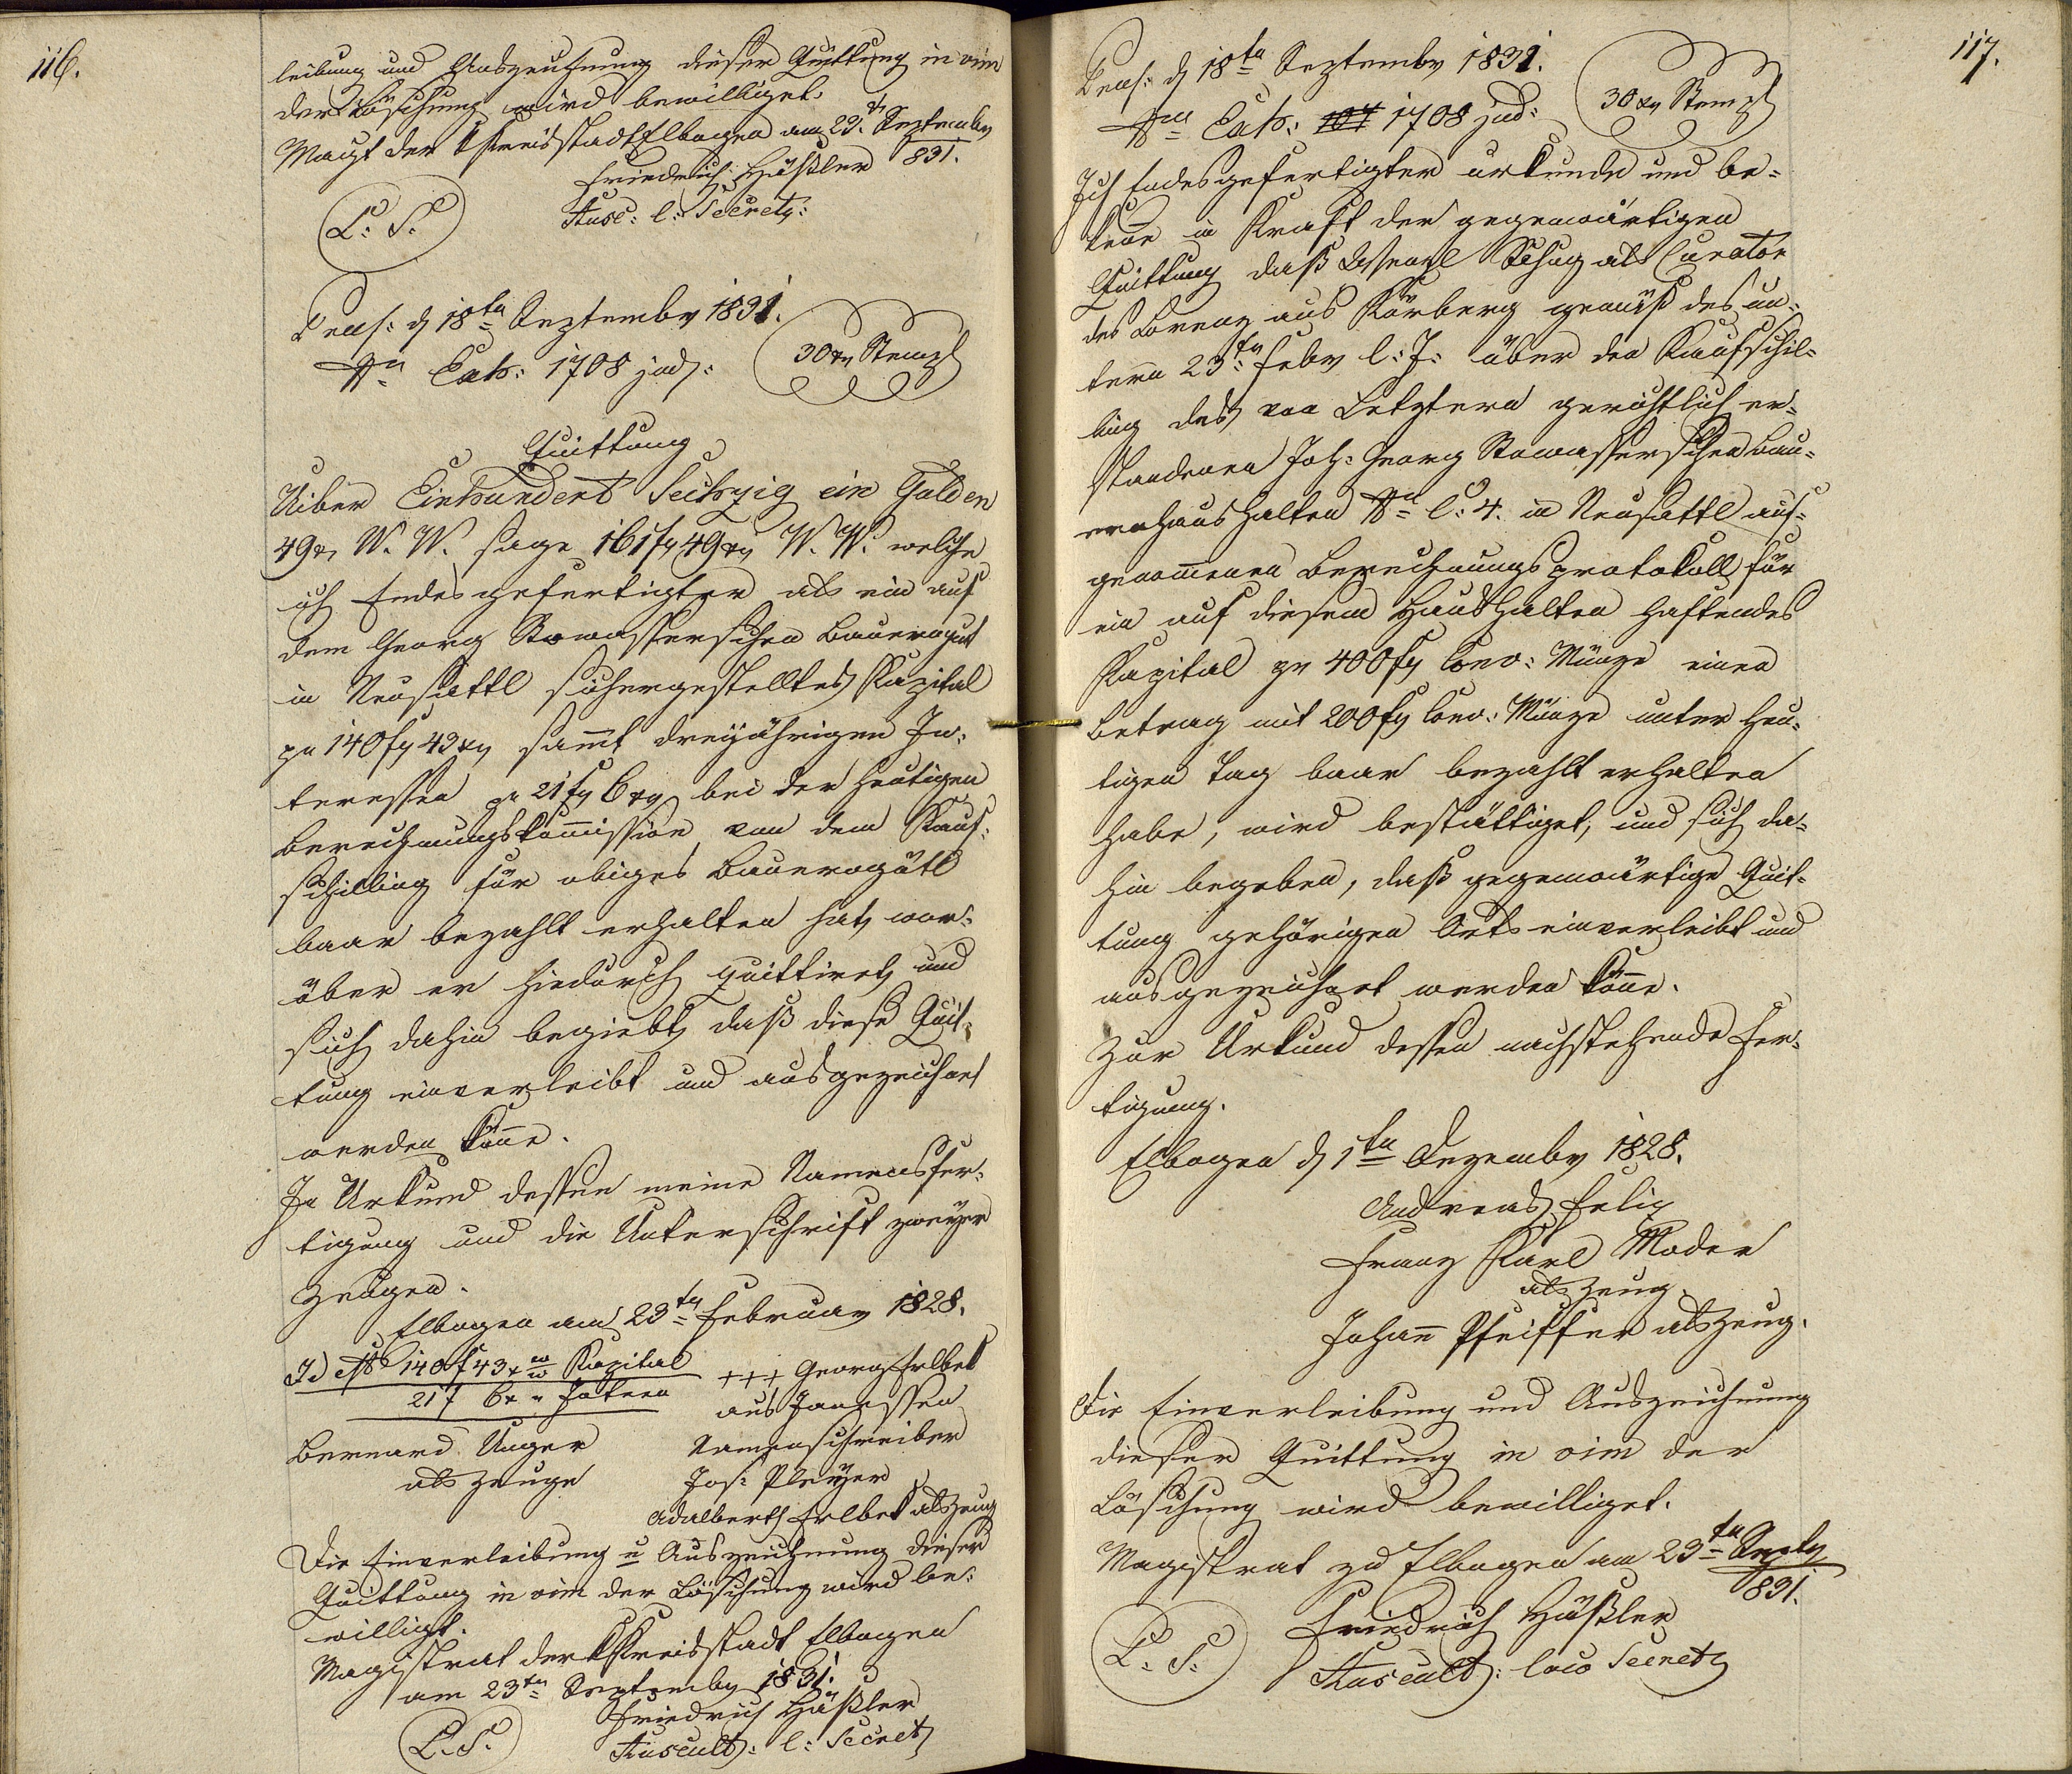 116.
leibung und Auszeichnung dieser Quittung in vim
der Löschung wird bewilliget.
Magt der Kreisstadt Elbogen am 23.t Septembr
831.
Friedrich Häßler
Ausc: l: Secret:
L. S.
Praes: d 18ten Septembr 1831.
Nr Exh: 1708 jud:
30xr Stempl
Quittung
Uiber Einhundert Sechzig ein Gulden
49xr W. W. sage 161fr 49xr W. W. welche
ich Endesgefertigter als ein auf
dem Georg Stowasserschen Bauerngut
in Neusattl sichergestelltes Kapital
pr 140fr 43xr sammt dreijährigen In-
teressen pr 21fr 6xr bei der heutigen
Berechnungskommission von dem Kauf-
schilling für obiges Bauerngütl
baar bezahlt erhalten hat, wor-
über er hiedurch quittiret, und
sich dahin begiebt, daß diese Quit-
tung einverleibt und ausgezeichnet
werden könne.
In Urkund dessen meine Namensfer-
tigung und die Unterschrift zweyer
Zeugen.
Elbogen am 23ten Februar 1828.
140f 43x Kapital
21f 6x
+++ Georg Erlbek
aus Janessen
Bernard Unger
als Zeuge
Namenschreiber
Jos: Pleyer
Adalbert Erlbek als Zeug
Die Einverleibung u Auszeichnung dieser
Quittung in vim der Löschung wird be-
willigt.
Magistrat der Kreisstadt Elbogen
am 23ten Septembr 1831.
Friedrich Häßler
Auscult: l: Secret
L. S.
117.
Praes: d 18ten Septembr 1831.
Nr Exh: 1708 jud:
30xr Stempl
Ich Endesgefertigter urkunde und be-
kene in Kraft der gegenwärtigen
Quittung daß Wenzl Schug als Curator
des Lorenz aus Körberg gemäß des un-
term 23ten Febr l: J: über den Kaufschil-
ling des von Letztern gerichtlich er-
standenen Joh: Georg Stowasserschen Bau-
ernhaushalten Nr C. 4. in Neusattl auf-
genommenen Berechnungsprotokoll für
ein auf diesem Haushalten haftendes
Kapital pr 400fr Conv: Münze einen
Betrag mit 200fr Conv: Münze unter heu-
tigen Tag baar bezahlt erhalten
habe, wird bestättiget, und sich da-
hin begeben, daß gegenwärtige Quit-
tung gehörigen Orts einverleibt und
ausgezeichnet werden könne.
Zur Urkund dessen nachstehende Fer-
tigung.
Elbogen d 1ten Dezembr 1828.
Andreas Felix
Franz Karl Mader
als Zeug
Johann Pfeiffer als Zeug.
Die Einverleibung und Auszeichnung
dieser Quittung in vim der
Löschung wird bewilliget.
Magistrat zu Elbogen am 23ten Septr
831.
Friedrich Häßler
Auscult: loco Secret
L. S.